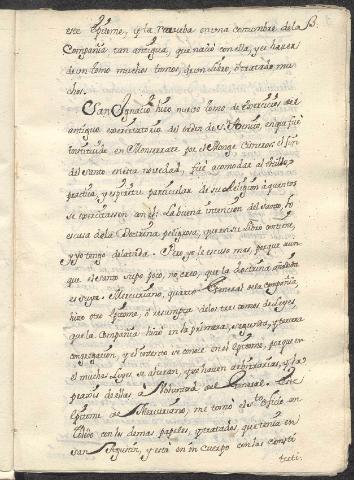 este Epitome, y la prueba en una costumbre de la
Compañia tan antigua, que nació con ella, y es hacer
de un tomo muchos tomos, de un libro, o tratado mu
chos.
San Ignacio hizo nuevo tomo de Exercicios del
antiguo exercitatorio del orden de S. Benito, en que fué
instituido en Monserrate por el Monge Cisneros: el fin
del santo en esta novedad, fué acomodar al
practica, y espiritu particular de su Religion a quantos
se exercitassen con el: La buena intencion del santo, lo
escusa de la Doctrina peligrosa, que en su libro contiene,
y yo tengo delatada. Pero yo le escuso mas, por que aun
que el santo supo poco, no creo, que la doctrina añadida
es suya. Mercuriano, quarto General de la Compañia,
hizo otro Epitome, o resumpta de los tres tomos de Leyes,
que la Compañia hizo en la primera, segunda, y tercera
congregacion, y el intento se conoce en el Epitome, por que en
el muchas Leyes se alteran, y se hacen arbitrarias, y la
practica de ellas à Voluntad del General. Este
Epitome de Mercuriano, me tomó el Sto. Oficio en
con los demas papeles, y tratados que tenia en
San Agustin, y está en un cuerpo con las consti
tuti.